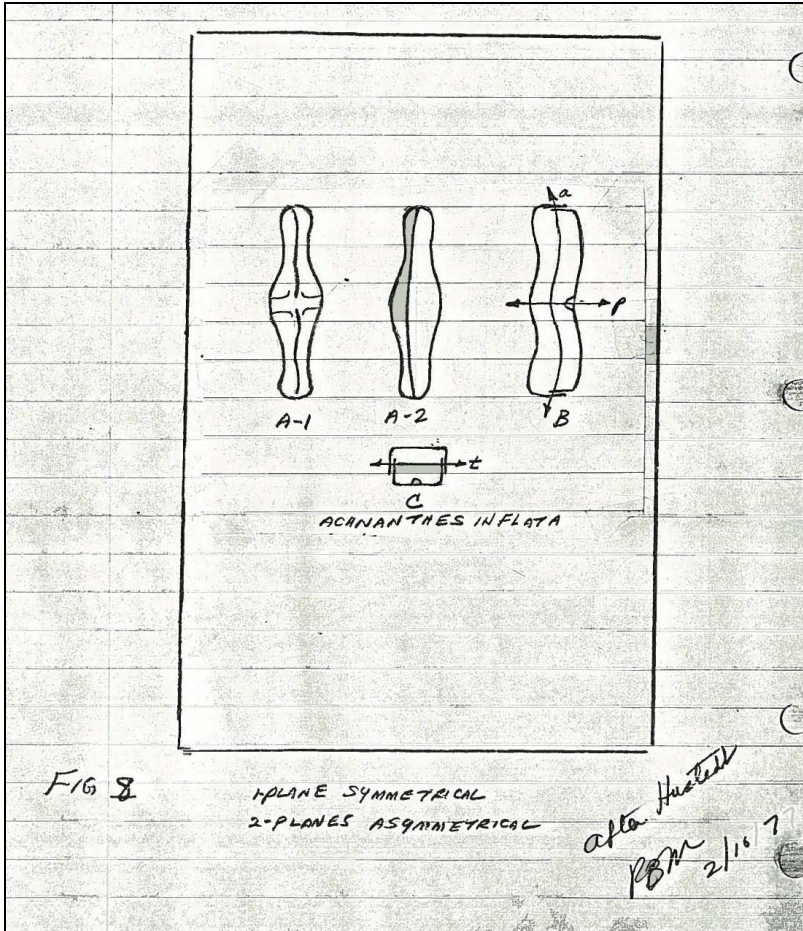 a
p
A-1
A-2
B
t
C
ACANANTHES INFLATA
FIG 8
1-PLANE SYMMETRICAL
2-PLANES ASYMMETRICAL
after Hustedt
PBM 2/10/7